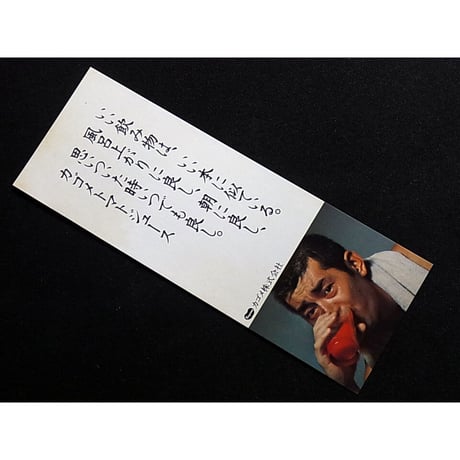 いい飲み物は、いい本に似ている。
風呂上がりに良し、朝に良し、
思いついた時いつでも良し。
カゴメトマトジュース
カゴメ株式会社